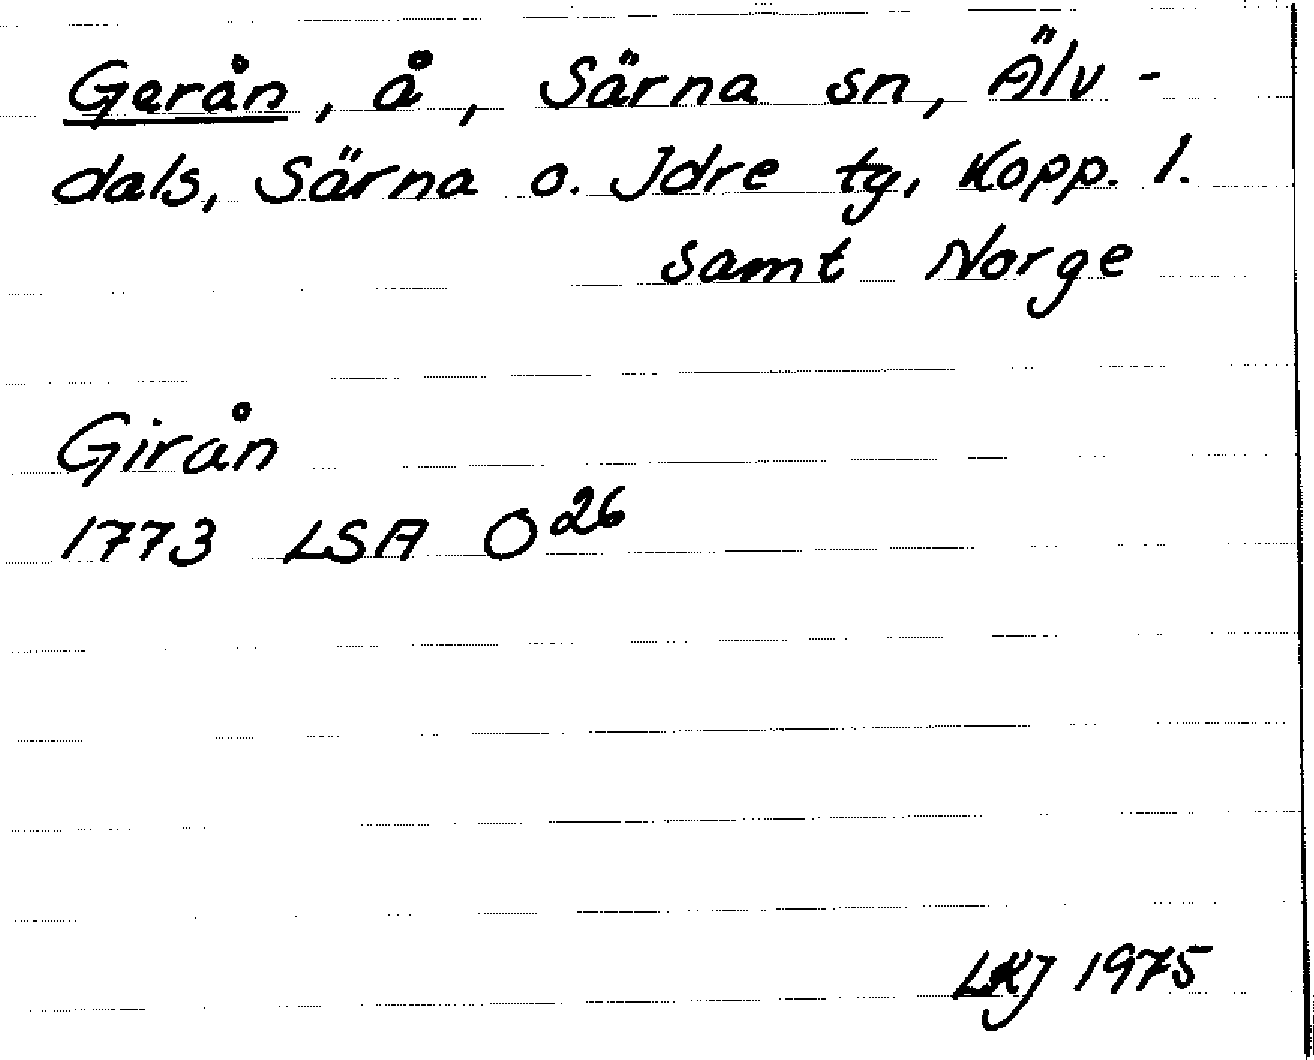 Gerån, å, Särna sn, Älv-
dals, Särna o. Idre tg, Kopp. l.
samt Norge
Girån
1773 LSA O26
LKJ 1975